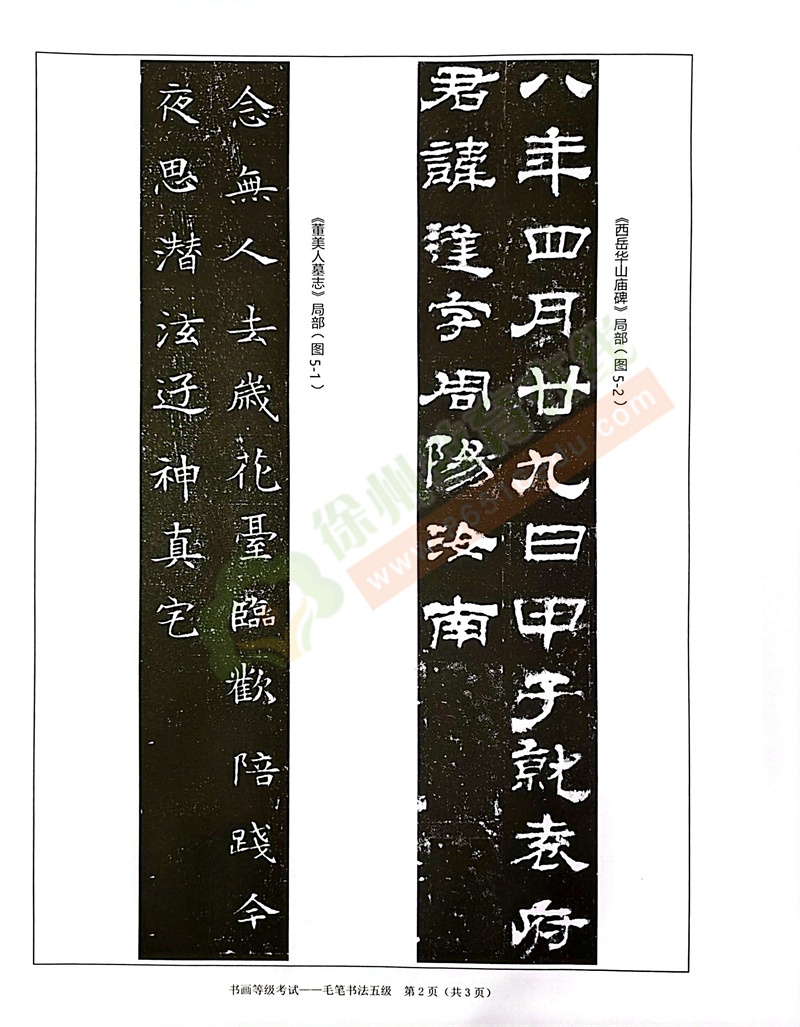 八年四月廿九日甲子就袁府
君諱逢字周陽汝南
《西岳华山庙碑》局部（图5-2）
念無人去歲花臺臨歡陪踐今
夜思潜泫迓神真宅
《董美人墓志》局部（图5-1）
徐州
书画等级考试——毛笔书法五级 第2页（共3页）